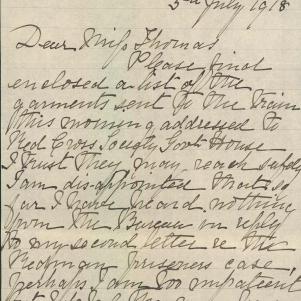 5th July 1918
Dear Miss Thomas
Please find
enclosed a list of the
garments sent to the train
this morning addressed to
Red Cross Society Foot House
I trust they may reach safely
I am disappointed that so
far I have heard nothing
from the Bureau in reply
to my second letter re the
Redman prisoners case,
perhaps I am too impatient